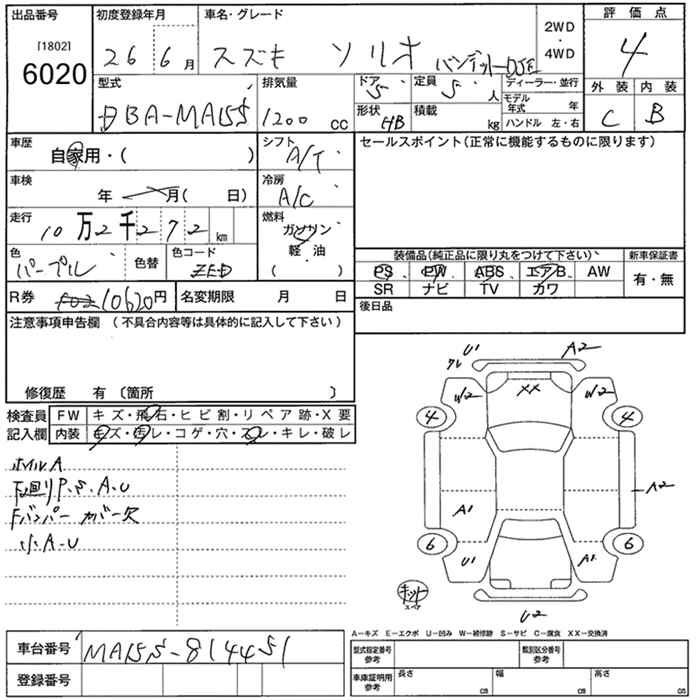 出品番号
[1802]
6020
初度登録年月
26 6月
車名・グレード
スズキ ソリオ バンデット-DJE
2WD
・
4WD
評価点
4
外装 内装
C B
型式
DBA-MA15S
排気量
1200 cc
ドア 5
定員 5 人
形状 HB
積載 kg
ディーラー・並行
モデル年式 年
ハンドル 左・右
車歴
自家用・( )
シフト
A/T
セールスポイント(正常に機能するものに限ります)
車検
年 月( 日)
冷房
A/C
走行
10万2千272km
燃料
ガソリン
軽・油
( )
色
パープル
色替
色コード
ZED
装備品(純品に限り丸をつけて下さい)
PS PW ABS エアB AW
SR ナビ TV カワ
新車保証書
有・無
R券
10620円
名変期限 月 日
後日品
注意事項申告欄 (不具合内容等は具体的に記入して下さい)
修復歴 有 〔箇所 〕
検査員
記入欄
FW キズ・飛石・ヒビ割・リペア跡・X要
内装 キズ・汚レ・コゲ・穴・スレ・キレ・破レ
ホイルA
下廻りP.S.A.U
Fバンパー カバー欠
小A-U
U1 A2
クレ
W2 XX W2
4 4
A2
A1
6 6
U1 A1
キット
スペア
U2
A-キズ E-エクボ U-凹み W-補修跡 S-サビ C-腐食 XX-交換済
車台番号
MA15S-814451
登録番号
型式指定番号
参考
類別区分番号
参考
車庫証明用
参考
長さ cm
幅 cm
高さ cm